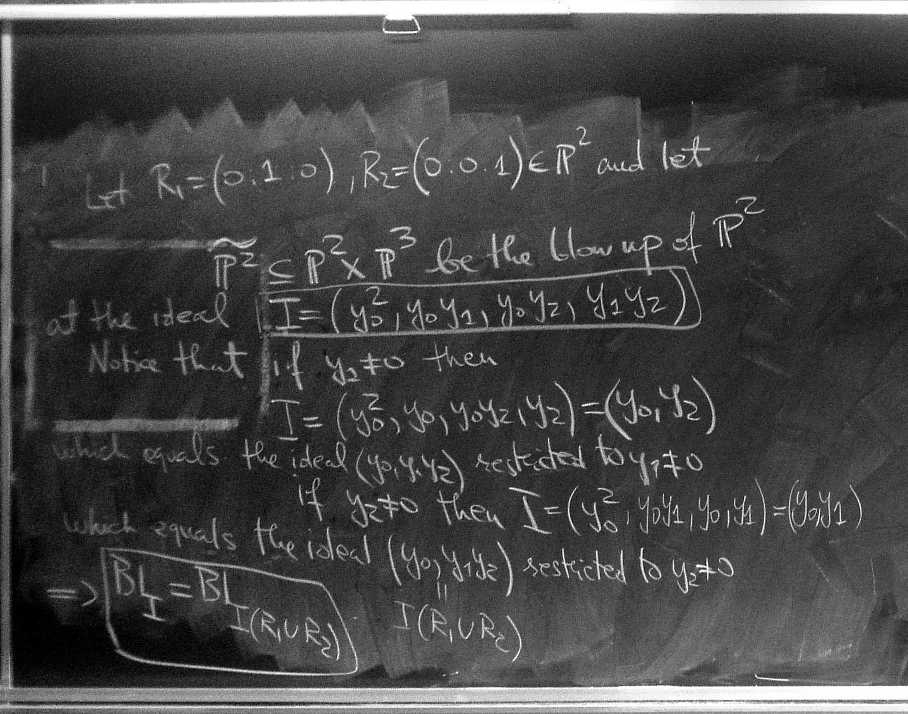 Let R₁=(0.1.0), R₂=(0.0.1)∈ℙ² and let
ℙ̃² ⊆ ℙ²×ℙ³ be the blow up of ℙ²
at the ideal I=(y₀², y₀y₁, y₀y₂, y₁y₂)
Notice that if y₂≠0 then
I=(y₀², y₀, y₀y₂, y₂)=(y₀,y₂)
which equals the ideal (y₀,y₁y₂) restricted to y₁≠0
if y₂≠0 then I=(y₀², y₀y₁, y₀, y₁)=(y₀,y₁)
which equals the ideal (y₀,y₁y₂) restricted to y₂≠0
=> BL_I = BL_I(R₁∪R₂) "
I(R₁∪R₂)